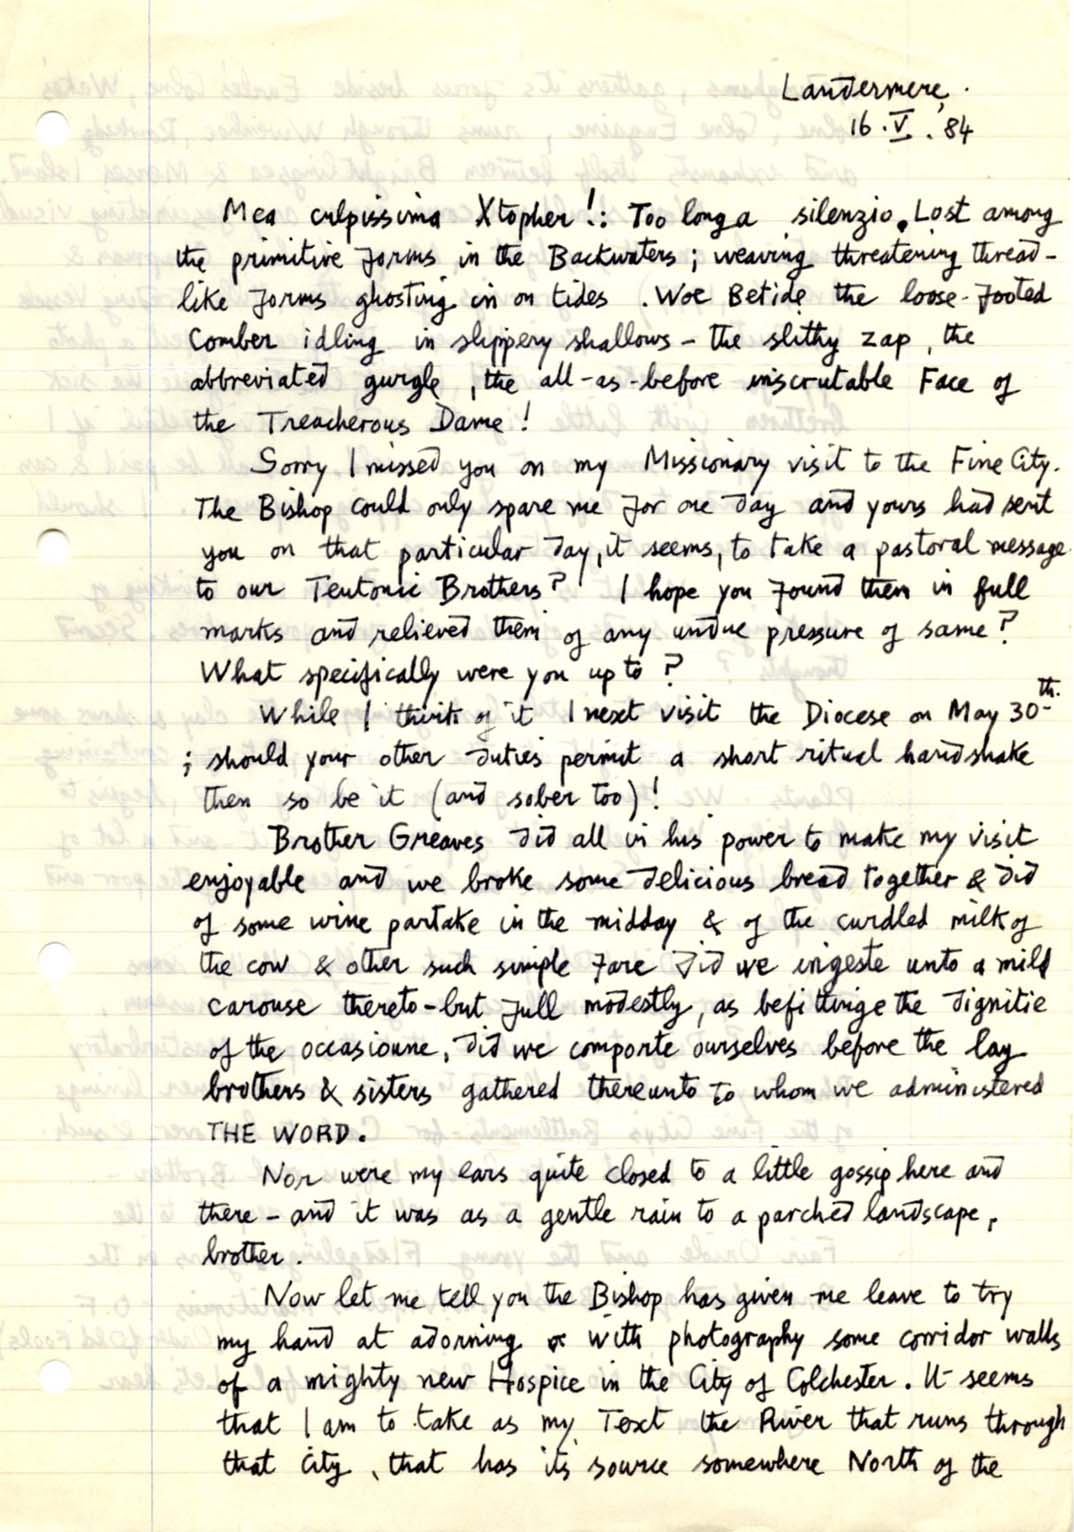 Landermere,
16.V.'84
Mea culpissima Xtopher!: Too long a silenzio. Lost among
the primitive forms in the Backwaters; weaving threatening thread-
like forms ghosting in on tides. Woe Betide the loose-footed
Comber idling in slippery shallows - the slithy zap, the
abbreviated gurgle, the all-as-before inscrutable Face of
the Treacherous Dame!
Sorry I missed you on my Missionary visit to the Fine City.
The Bishop could only spare me for one day and yours had sent
you on that particular day, it seems, to take a pastoral message
to our Teutonic Brothers? I hope you found them in full
marks and relieved them of any undue pressure of same?
What specifically were you up to?
While I think of it I next visit the Diocese on May 30th.
; should your other duties permit a short ritual handshake
then so be it (and sober too)!
Brother Greaves did all in his power to make my visit
enjoyable and we broke some delicious bread together & did
of some wine partake in the midday & of the curdled milk of
the cow & other such simple fare did we ingeste unto a mild
carouse thereto - but full modestly, as befittinge the dignitie
of the occasioune, did we comporte ourselves before the lay
brothers & sisters gathered thereunto to whom we administered
THE WORD.
Nor were my ears quite closed to a little gossip here and
there - and it was as a gentle rain to a parched landscape,
brother.
Now let me tell you the Bishop has given me leave to try
my hand at adorning with photography some corridor walls
of a mighty new Hospice in the City of Colchester. It seems
that I am to take as my Text the River that runs through
that City, that has its source somewhere North of the